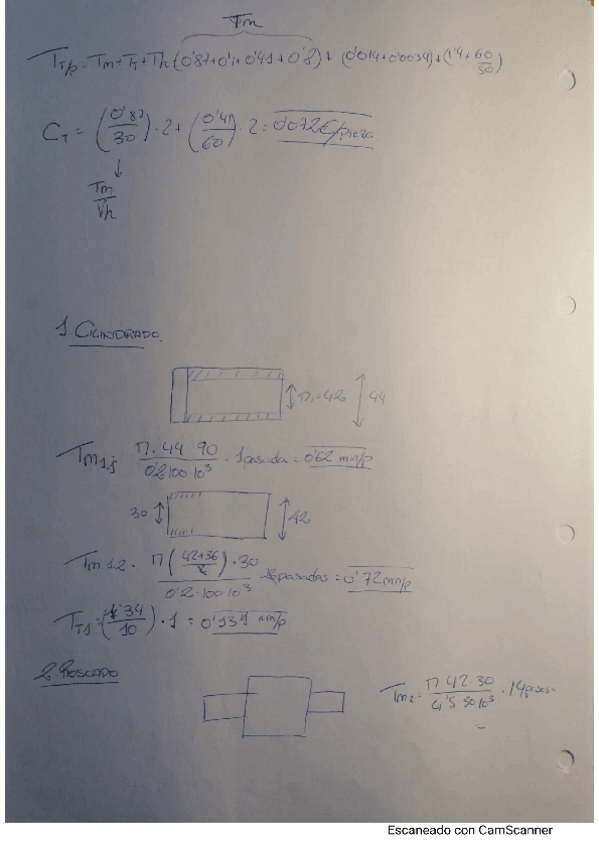 Tm
T T/p = Tm + Tt + Th (0'87+0'1+0'41+0'8) + (0'014+0'0034)+(1'4+60/50)
CT = (0'87/30) · 2 + (0'41/60) · 2 = 0'072€/pieza
Tm
1. CILINDRADO
42
44
Tm1.1 = π·44·90/0'2·100·10³ · 1 pasada = 0'62 min/p
30
42
Tm 1.2 = π(42+36/2)·30/0'2·100·10³ pasadas = 0'72 min/p
TT1 = (1'34/10) · 1 = 0'134 min/p
2. ROSCADO
Tm2 = π 42·30/4'5 50 10³ · 14 pasas.
Escaneado con CamScanner